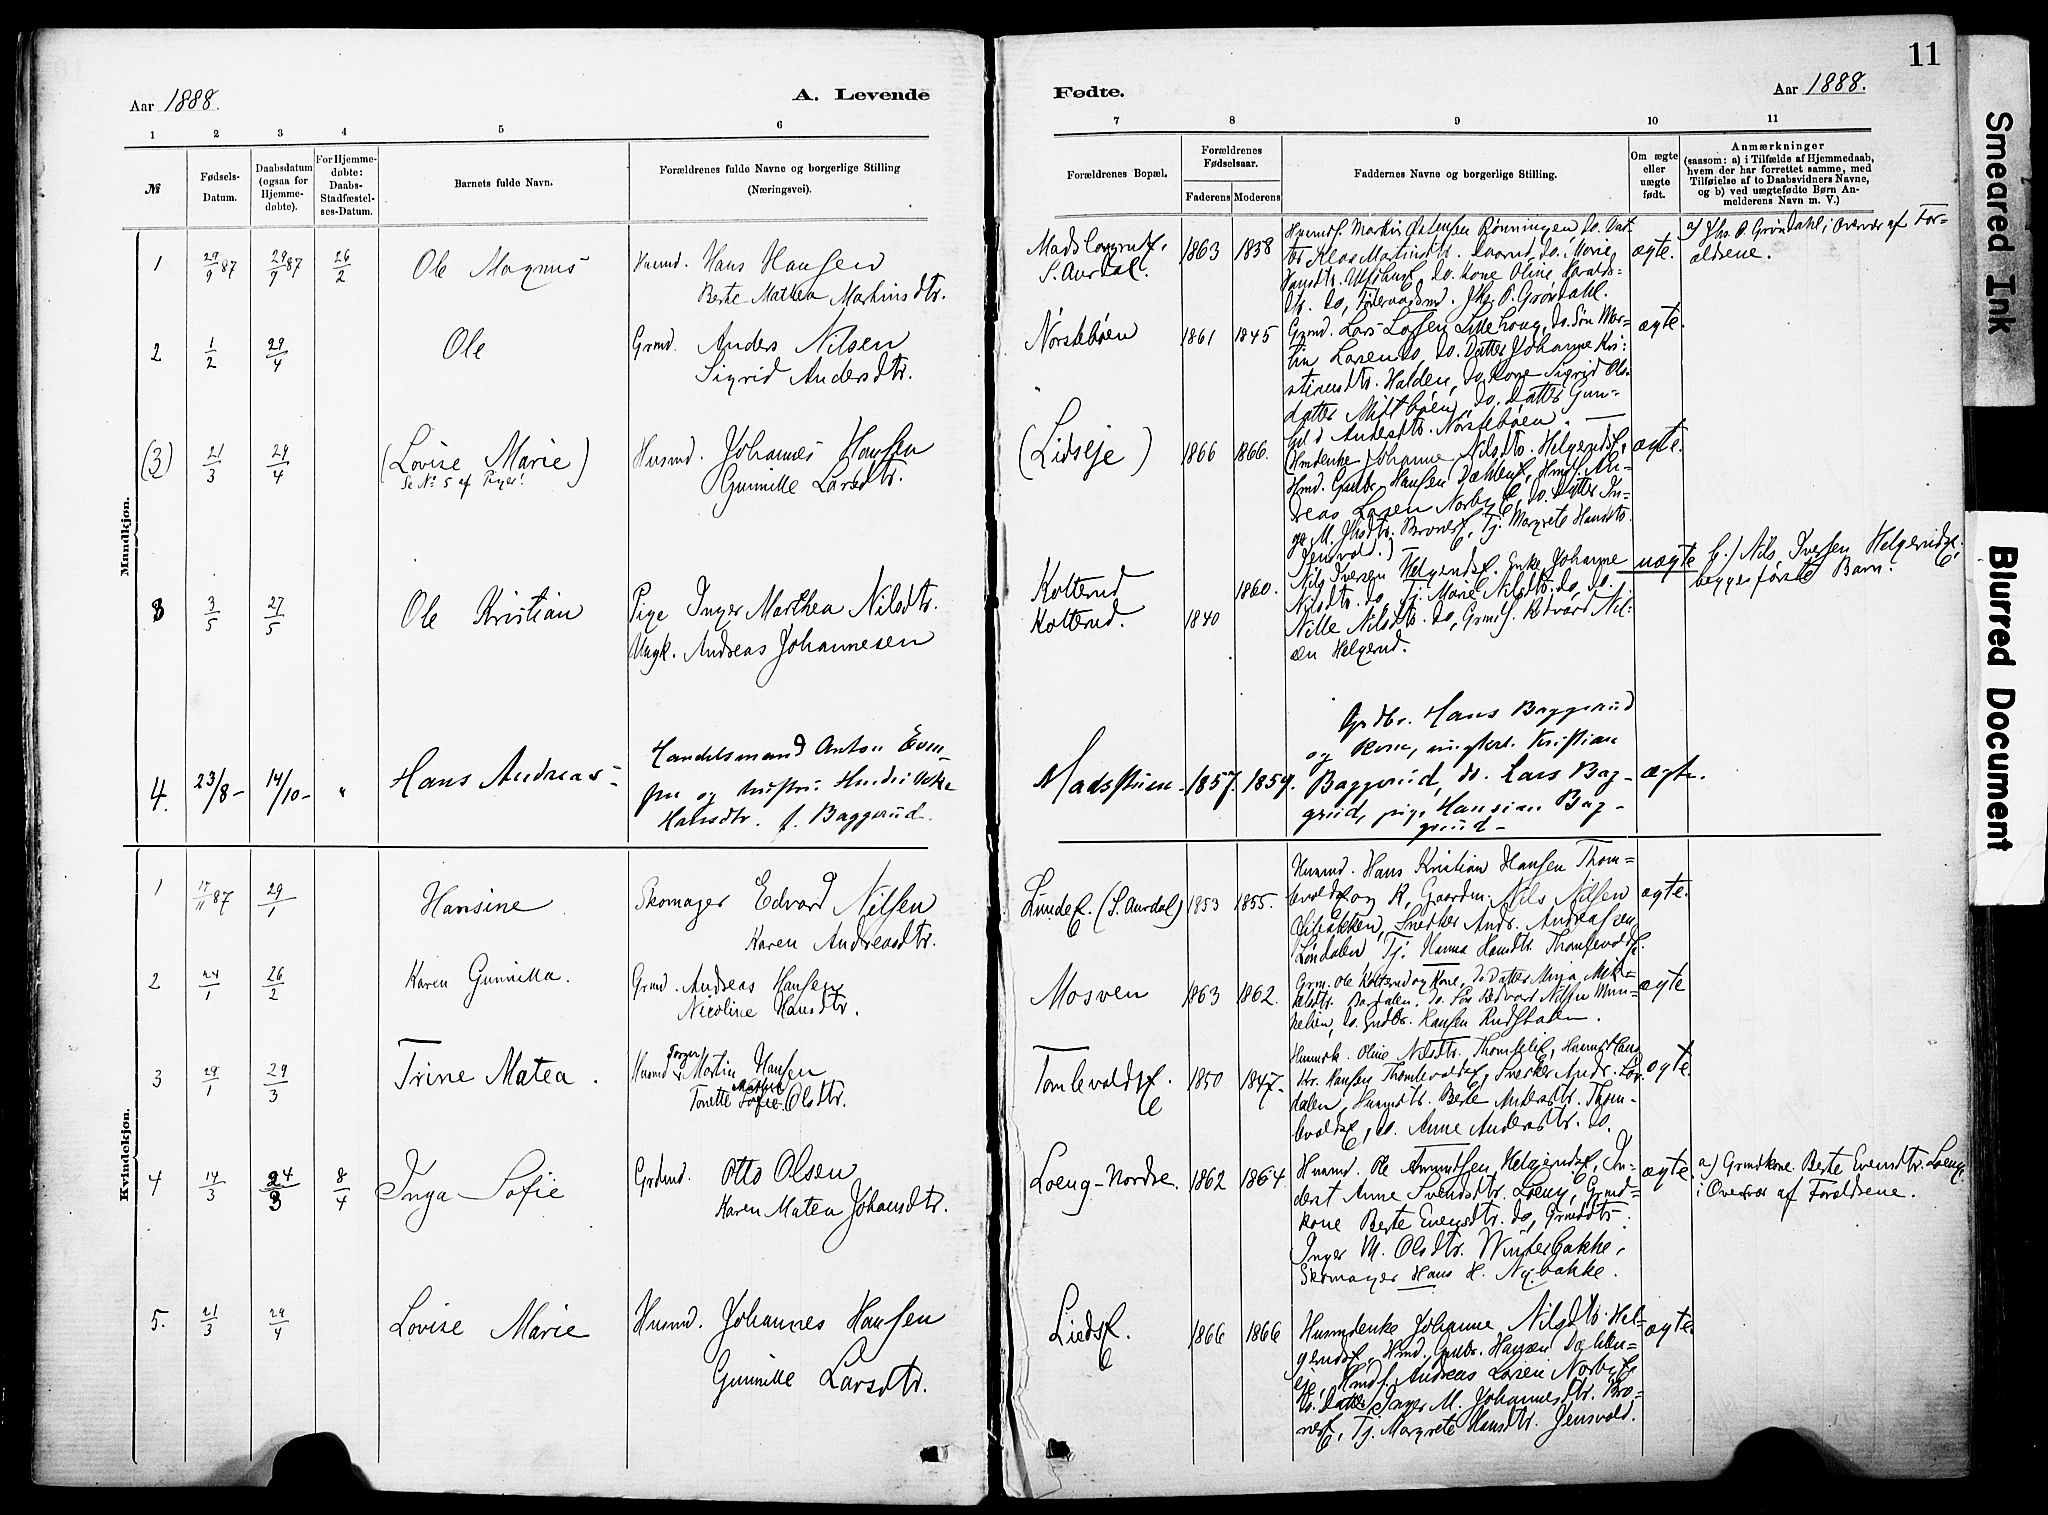 11
Aar 1888.
A. Levende
Fødte.
Aar 1888.
1 2 3 4 5 6 7 8 9 10 11
№
Fødsels-
Datum.
Daabsdatum
(ogsaa for
Hjemme-
døbte).
For Hjemme-
døbte:
Daabs-
Stadfæstel-
ses-Datum.
Barnets fulde Navn.
Forældrenes fulde Navne og borgerlige Stilling
(Næringsvei).
Forældrenes Bopæl.
Forældrenes
Fødselsaar.
Faderens Moderens
Faddernes Navne og borgerlige Stilling.
Om ægte
eller
uægte
født.
Anmærkninger
(saasom: a) i Tilfælde af Hjemmedaab,
hvem der har forrettet samme, med
Tilføielse af to Daabsvidners Navne,
og b) ved uægtefødte Børn An-
melderens Navn m. V.)
Mandkjøn.
1 29/9 87 29/9 87 26/2 Ole Magnus
Husmd. Hans Hansen
Berte Mathea Martinsdtr.
S. Aurdal.
1863 1858
Husmdf. Martin Rønningen, do. Dat-
do. Kone Oline Haralds-
dtr. do, Jhs. P. Grøndahl.
ægte.
a) Jhs. P. Grøndahl i Overvær af For-
ældrene.
2 1/2 29/4 Ole
Grmd. Anders Nilsen
Sigrid Andersdtr.
Nørstebøen
1861 1845
Grmd. Lars Larsen Lillehaug, do. Søn Mar-
tin Larsen do, do. Datter Johanne Kri-
stiansdtr. Halden, do. Kone Sigrid Ols-
datter Midtbøen, do. Datter Gun-
hild Andersdtr. Nørstebøen.
ægte.
(3) 21/3 29/4 (Lovise Marie)
Se No 5 af Piger!
Husmd. Johannes Hansen
Gunnille Larsdtr.
(Lidseje)
1866 1866.
(Hmdenke Johanne Nilsdtr. Helgerudse,
Hmd. Gudbr. Hansen Dækkene, Hmdf. An-
dreas Larsen Norby E, do. Datter In-
ger M. Jhsdtr. Broerse, Tj. Margrete Hansdtr.
Jensvold.)
ægte.
8 3/5 27/5 Ole Kristian
Pige Inger Marthea Nilsdtr.
Ungk. Andreas Johannesen
Kolterud
Kolterud.
1840 1860.
Nils Iversen Helgerudse. Enke Johanne
Nilsdtr. do, Tj. Marie Nilsdtr. do, do.
Nille Nilsdtr. do, Grmdf. Edvard Nil-
sen Helgerud.
uægte
b.) Nils Iversen Helgerudse.
begges første Barn.
4. 23/8- 14/10- " Hans Andreas
Handelsmand Anton Even-
sen og hustru Hendrikke
Hansdtr. f. Baggerud.
Madsstuen
1857. 1859.
Grdbr. Hans Baggerud
og Kone, ungkrl. Kristian
Baggerud, do. Lars Bag-
grud, pige Hansine Bag-
grud-
ægte.
Kvindekjøn.
1 17/11 87 29/1 Hansine
Skomager Edvard Nilsen
Karen Andreasdtr.
Lundee. (S. Aurdal)
1853 1855.
Husmd. Hans Kristian Hansen Thom-
levoldse og K, Gaardm. Nils Nilsen
Snedker Andr. Andreassen
Lindalen Tj. Hanna Hansdtr. Thomlevoldse.
ægte.
2 24/1 26/2 Karen Gunnilla.
Grmd. Andreas Hansen
Nicoline Hansdtr.
Mosven
1863 1862.
Grm. Ole Kolterud og Kone, do. Datter Minja Mik-
kelsdtr. Bardalen, do. Søn Edvard Nilsen Mun-
kelien, do. Gudbr. Hansen Rudsdalen.
ægte
3 29/1 29/3 Trine Matea.
Husmd. Torger Martin Hansen
Tonette Mathea Sofie Olsdtr.
Tomlevoldse.
1850 1847.
Husmdk. Oline Nilsdtr. Thomlevse, Husmd. Hans
Kr. Hansen Thomlevoldse, Snedker Andr. Lin-
dalen, Husmdtr. Berte Andersdtr. Thom-
levoldse, do. Anne Andersdtr. do.
ægte.
4 14/3 24/3 8/4 Inga Sofie
Grdmd. Otto Olsen
Karen Matea Johansdtr.
Loeng-Nordre.
1862 1864.
Husmd. Ole Amundsen Helgerudse, In-
derst Anne Svendsdtr. Loeng, Grmd-
kone Berte Evensdtr. do, Grmddtr.
Inger M. Olsdtr. Winterbakke,
Skomager Hans H. Nybakke.
ægte.
a) Grmdkone Berte Evensdtr. Loeng.
i Overvær af Forældrene.
5. 21/3 29/4 Lovise Marie
Husmd. Johannes Hansen
Gunnille Larsdtr.
Liedse.
1866 1866
Husmdenke Johanne Nilsdtr. Hel-
gerudse, Hmd. Gudbr. Hansen Dækken-
eje, Hmdf. Andreas Larsen Norby E
do. Datter Inger M. Johannesdtr. Bro-
erse, Tj. Margrete Hansdtr. Jensvold.
ægte.
Smeared Ink
Blurred Document